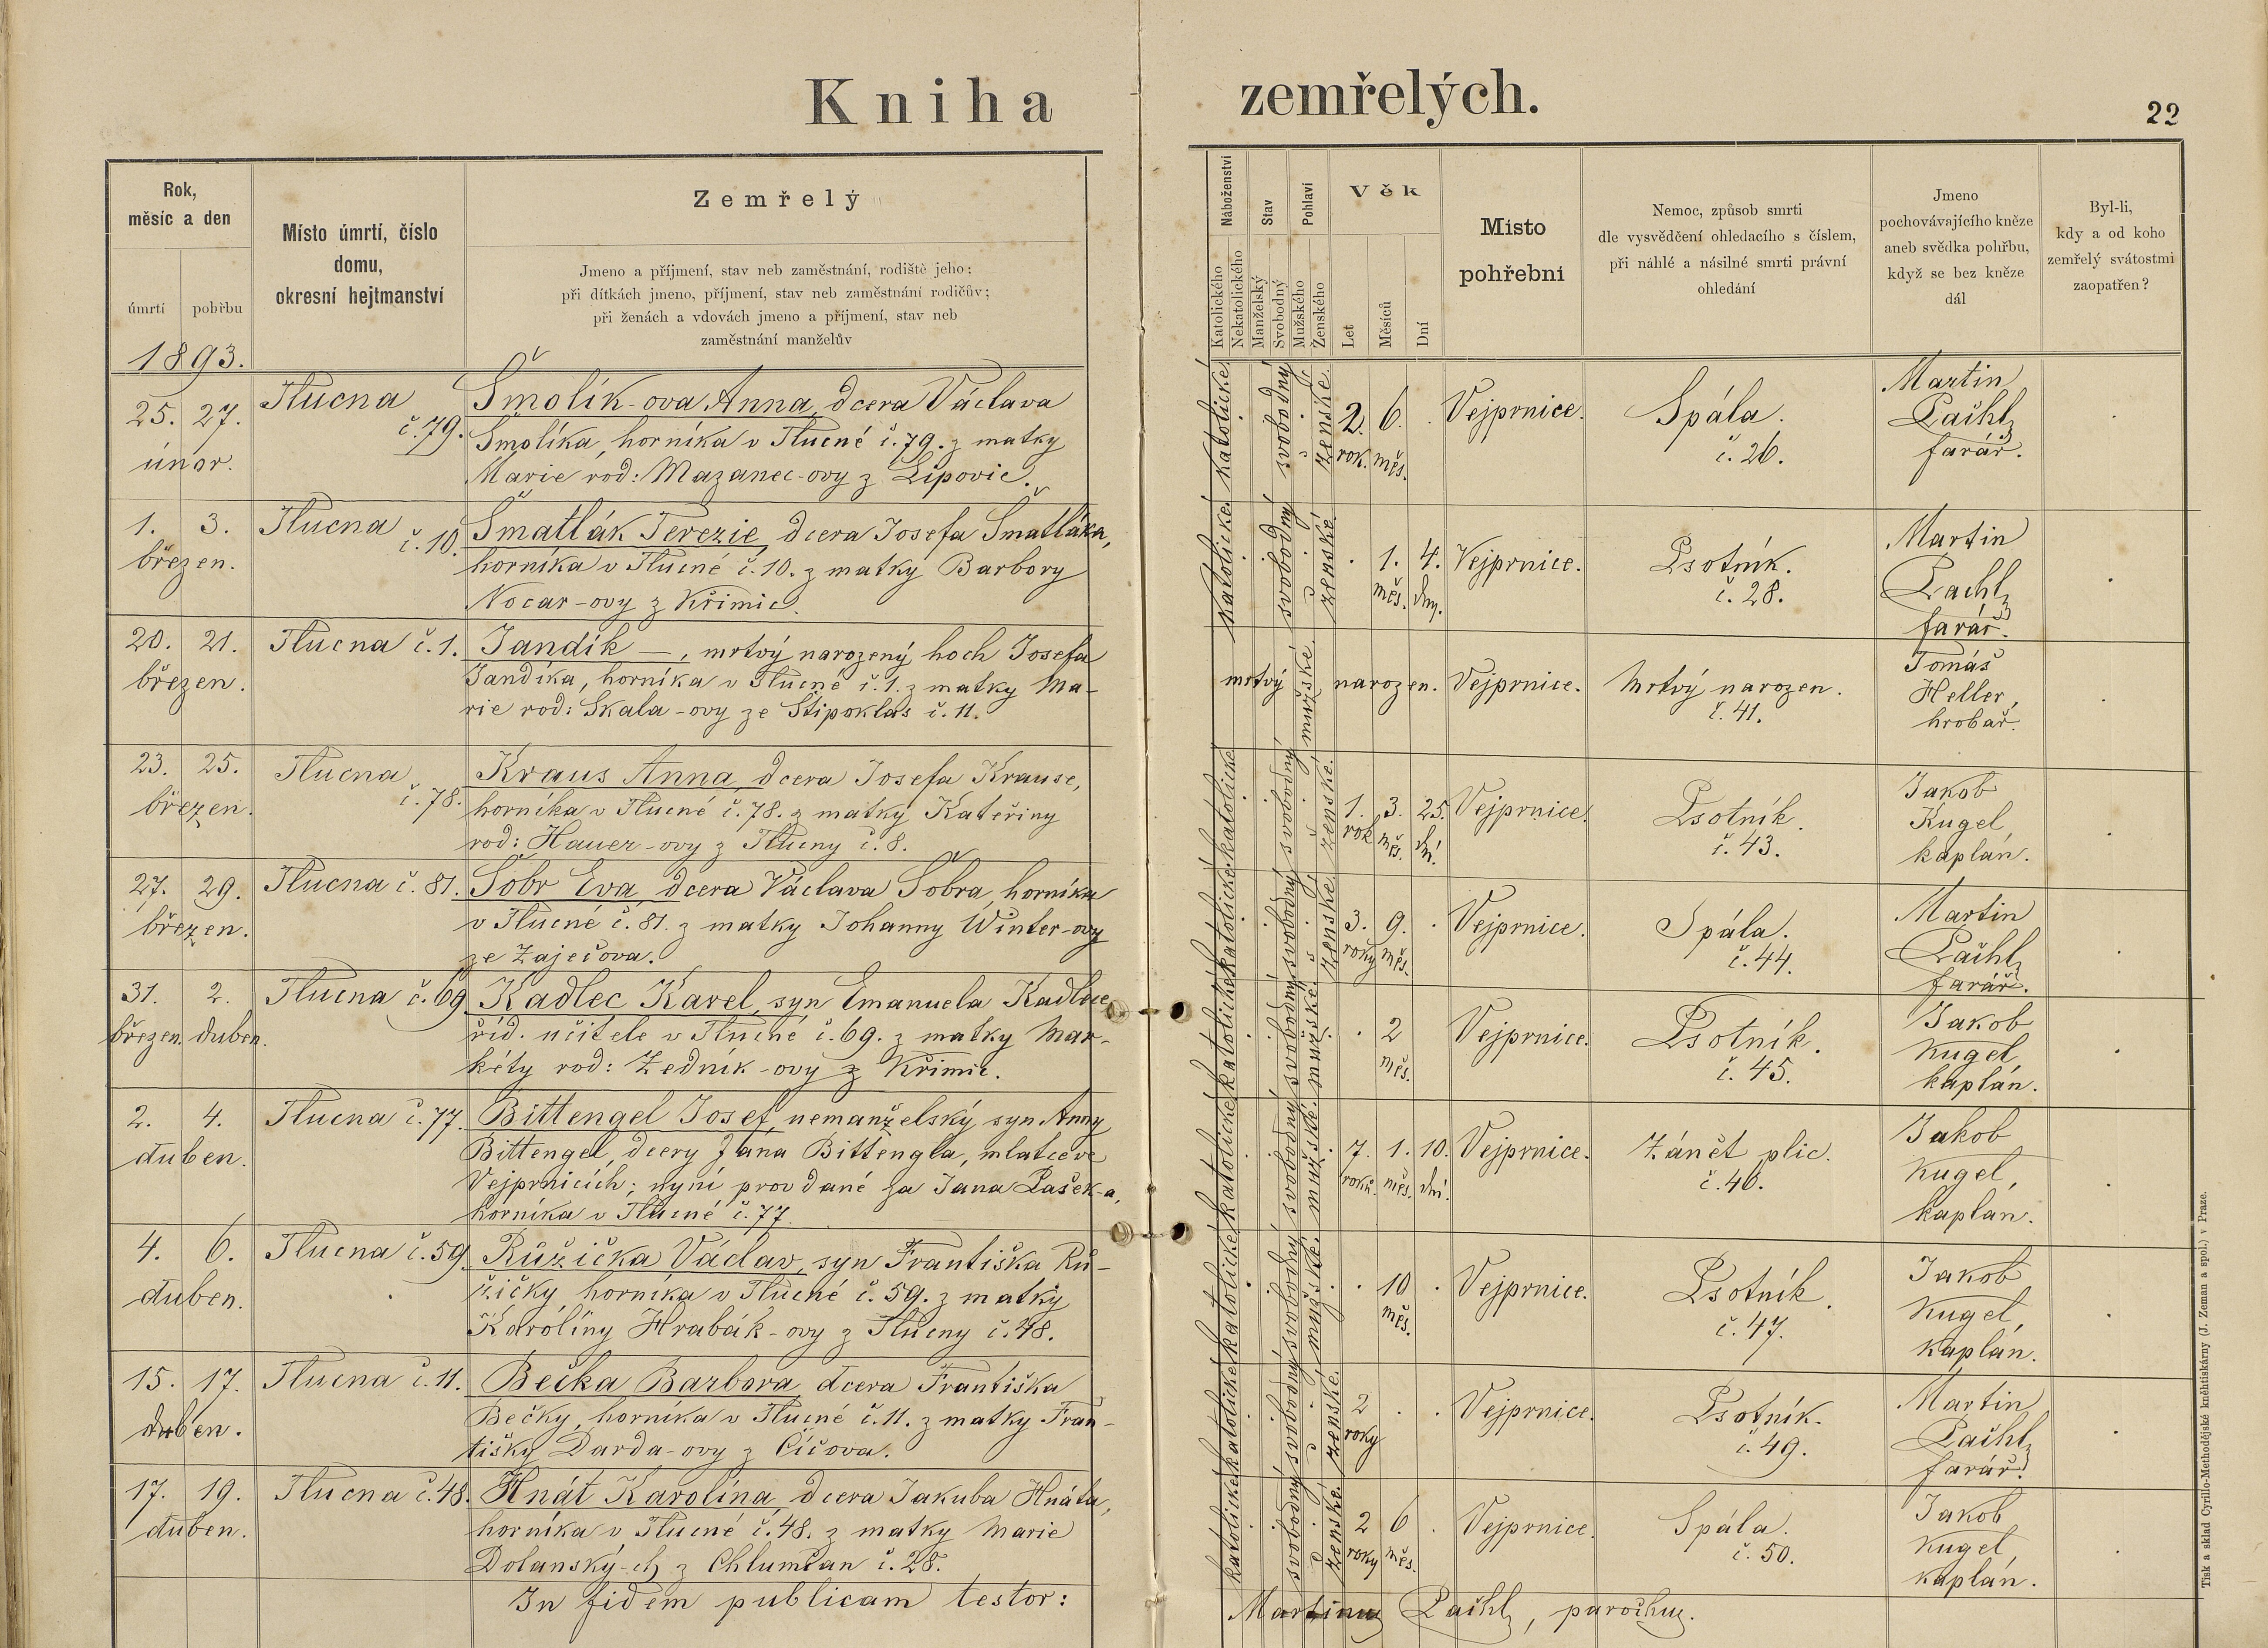 Kniha zemřelých.
22
Rok, měsíc a den
úmrtí
pohřbu
Místo úmrtí, číslo domu, okresní hejtmanství
Zemřelý
Jmeno a příjmení, stav neb zaměstnání, rodiště jeho;
při dítkách jmeno, příjmení, stav neb zaměstnání rodičův;
při ženách a vdovách jmeno a příjmení, stav neb
zaměstnání manželův
Náboženství
Katolického
Nekatolického
Stav
Manželský
Svobodný
Pohlaví
Mužského
Ženského
Věk
Let
Měsíců
Dní
Místo
pohřební
Nemoc, způsob smrti
dle vysvědčení ohledacího s číslem,
při náhlé a násilné smrti právní
ohledání
Jmeno
pochovávajícího kněze
aneb svědka pohřbu,
když se bez kněze
dál
Byl-li,
kdy a od koho
zemřelý svátostmi
zaopatřen?
1893.
25. 27.
únor.
Tlucna
č. 79.
Šmolík-ova Anna, dcera Václava
Šmolíka, horníka v Tlucné č. 79. z matky
Marie rod: Mazanec-ovy z Lipovic.
katolické svobodný ženské
2. 6.
rok. měs.
Vejprnice.
Spála.
č. 26.
Martin
Pachl,
farář.
1. 3.
březen.
Tlucna
č. 10.
Šmatlák Terezie, dcera Josefa Šmatláka,
horníka v Tlucné č. 10. z matky Barbory
Nocar-ovy z Křimic.
katolické svobodný ženské
1. 4.
měs. dny.
Vejprnice.
Psotník.
č. 28.
Martin
Pachl,
farář.
20. 21.
březen.
Tlucna č. 1.
Jandík —, mrtvý narozený hoch Josefa
Jandíka, horníka v Tlucné č. 1. z matky Ma-
rie rod: Skala-ovy ze Štipoklas č. 11.
mrtvý mužské narozen.
Vejprnice.
Mrtvý narozen.
č. 41.
Tomáš
Heller,
hrobař.
23. 25.
březen.
Tlucna
č. 78.
Kraus Anna, dcera Josefa Krause,
horníka v Tlucné č. 78. z matky Kateřiny
rod: Hauer-ovy z Tlucny č. 8.
katolické svobodný ženské
1. 3. 25.
rok měs. dní.
Vejprnice.
Psotník.
č. 43.
Jakob
Kugel,
kaplán.
27. 29.
březen.
Tlucna č. 81.
Šobr Eva, dcera Václava Šobra, horníka
v Tlucné č. 81. z matky Johanny Winter-ovy
ze Zaječova.
katolické svobodný ženské
3. 9.
roky měs.
Vejprnice.
Spála.
č. 44.
Martin
Pachl,
farář.
31. 2.
březen. duben.
Tlucna č. 69
Kadlec Karel, syn Emanuela Kadlece
říd. učitele v Tlucné č. 69. z matky Mar-
kéty rod: Zedník-ovy z Křimic.
katolické svobodný mužské
2
měs.
Vejprnice.
Psotník.
č. 45.
Jakob
Kugel,
kaplán.
2. 4.
duben.
Tlucna č. 77.
Bittengel Josef, nemanželský syn Anny
Bittengel, dcery Jana Bittengla, mlatce ve
Vejprnicích; nyní provdané za Jana Pašek-a,
horníka v Tlucné č. 77.
katolické svobodný mužské
7. 1. 10.
roků. měs. dní.
Vejprnice.
Zánět plic.
č. 46.
Jakob
Kugel,
kaplan.
4. 6.
duben.
Tlucna č. 59.
Růžička Václav, syn Františka Rů-
žičky, horníka v Tlucné č. 59. z matky
Karolíny Hrabák-ovy z Tlucny č. 48.
katolické svobodný mužské
10
měs.
Vejprnice.
Psotník.
č. 47.
Jakob
Kugel,
kaplán.
15. 17.
duben.
Tlucna č. 11.
Bečka Barbora, dcera Františka
Bečky, horníka v Tlucné č. 11. z matky Fran-
tišky Darda-ovy z Číčova.
katolické svobodný ženské
2
roky
Vejprnice.
Psotník.
č. 49.
Martin
Pachl,
farář.
17. 19.
duben.
Tlucna č. 48.
Hnát Karolína, dcera Jakuba Hnáta,
horníka v Tlucné č. 48. z matky Marie
Dolanský-ch z Chlumčan č. 28.
katolické svobodný ženské
2 6
roky měs.
Vejprnice.
Spála.
č. 50.
Jakob
Kugel
kaplán.
In fidem publicam testor:
Martinus Pachl, parochus.
Tisk a sklad Cyrillo-Methodějské kněhtiskárny (J. Zeman a spol.) v Praze.